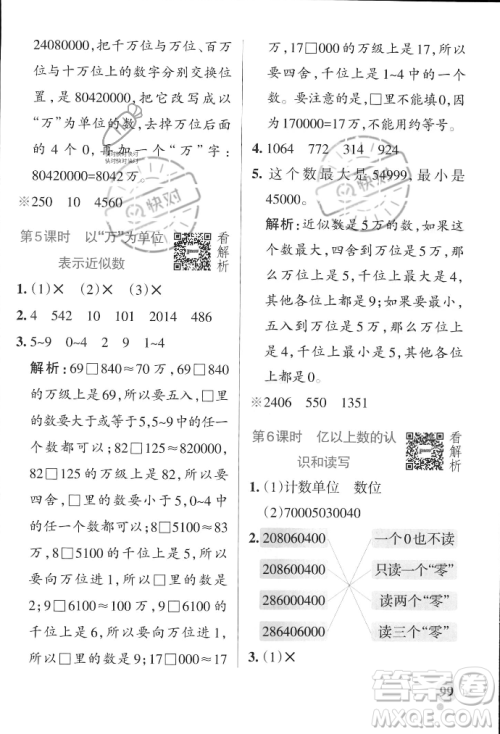 24080000，把千万位与万位、百万
位与十万位上的数字分别交换位
置，是 80420000，把它改写成以
“万”为单位的数，去掉万位后面
的 4 个 0，再加一个“万”字：
80420000=8042万。
※250 10 4560
第5课时 以“万”为单位
表示近似数
看解析
1. (1)× (2)× (3)×
2. 4 542 10 101 2014 486
3. 5~9 0~4 2 9 1~4
解析：69□840≈70 万，69□840
的万级上是 69，所以要五入，□里
的数要大于或等于 5，5~9 中的任
何一个数都可以；82□100≈82
万，82□100 的万级上是 82，所以
要四舍，□里的数要小于 5，0~4 中
的任何一个数都可以；8□5100≈
83 万，8□5100 的千位上是 5，所以
要向万位进 1，所以□里的数是
2；9□6120≈100 万，9□6120 的
千位上是 6，所以要向万位进 1，
所以□里的数是 9；17□000≈17
万，17□000 的万级上是 17，所以
要四舍，□里是 1~4 中的一个
数。要注意的是，□里不能填 0，
因为 170000=17 万，不能用约等号。
4. 1064 772 314 924
5. 这个数最大是 54999，最小是
45000。
解析：近似数是 5 万的数，四
舍后万位上是 5 的数，万位上
是 5，千位上最大是 4，要想最
大，其他各位上都是 9；而约等
于 5 万的数中最小的数，千位
五入到万位是 5 万，所以万位
上是 4，千位上是 5，其他各位都
是 0。
※2406 550 1351
第6课时 亿以上数的认
识和读写
看解析
1. (1)计数单位 数位
(2)70005030040
2. 208060400 一个0也不读
208600400 只读一个“零”
286000400 读两个“零”
286406000 读三个“零”
3. (1)×
99
快对
答案圈
MXQE.COM